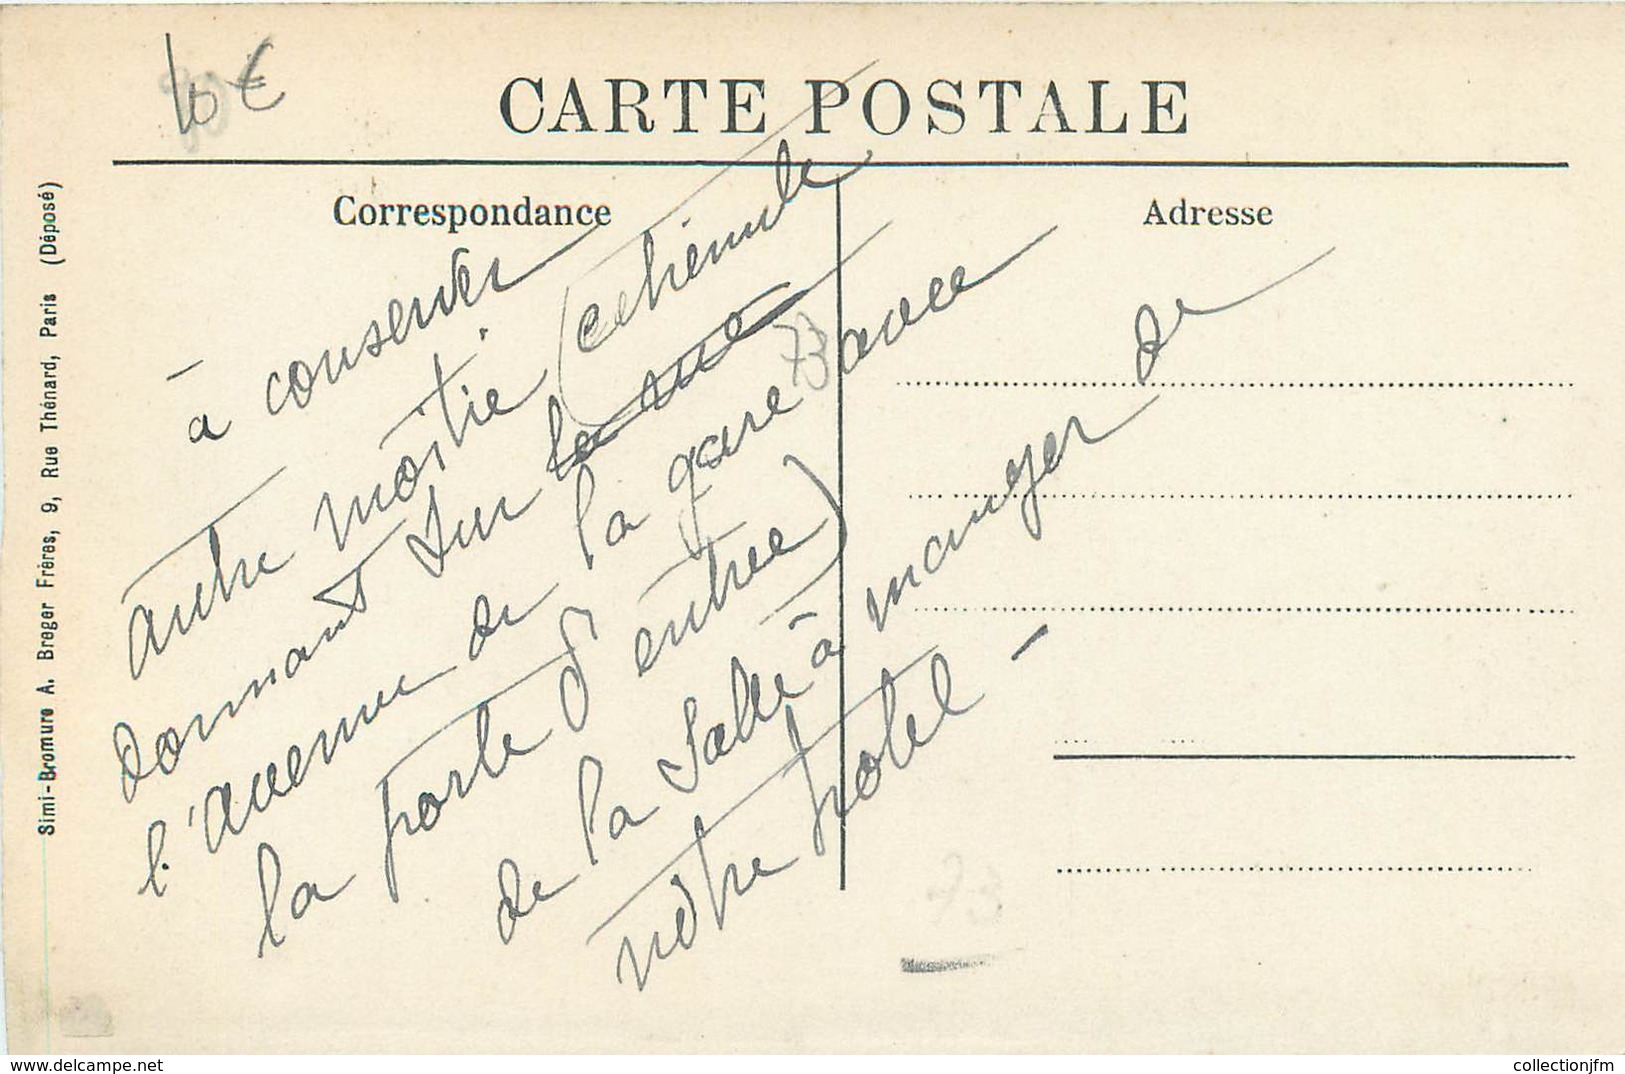 10 €
CARTE POSTALE
Correspondance
Adresse
à conserver
autre moitié (
donnant sur la rue
l'avenue de la gare avec
la porte d'entrée)
de la salle à manger de
notre hotel -
73
Simi-Bromure A. Breger Frères, 9, Rue Thénard, Paris (Déposé)
www.delcampe.net
collectionjfm